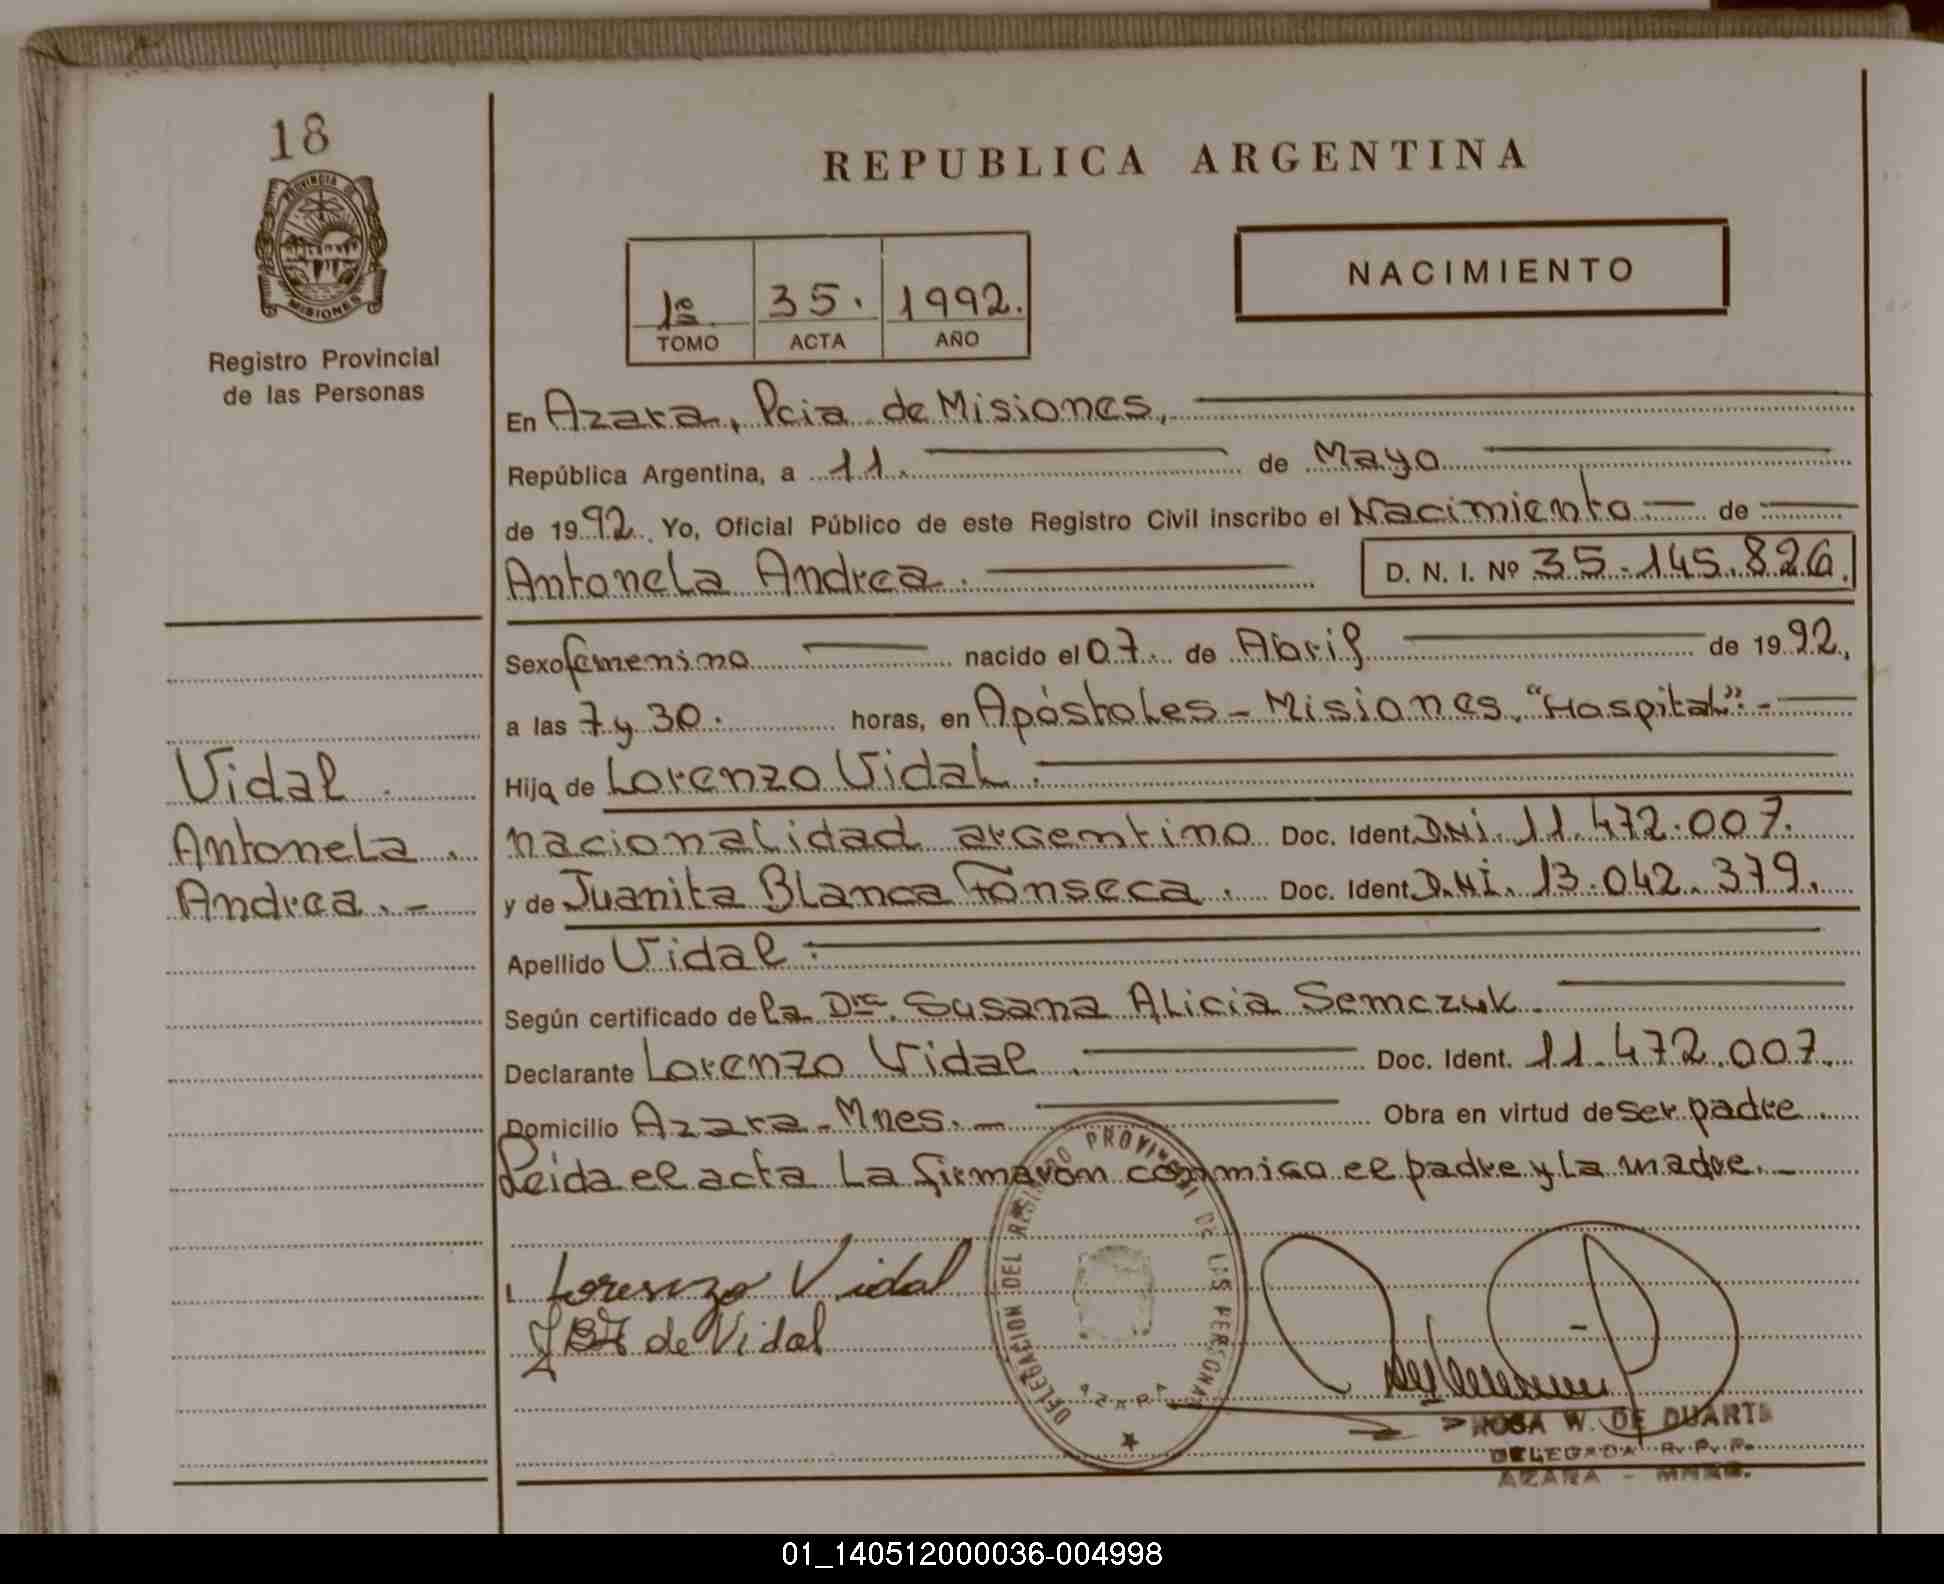 18
PROVINCIA DE
MISIONES
Registro Provincial
de las Personas
REPUBLICA ARGENTINA
1º 35. 1992.
TOMO ACTA AÑO
NACIMIENTO
En Azara, Pcia de Misiones,
República Argentina, a 11. de Mayo
de 1992. Yo, Oficial Público de este Registro Civil inscribo el Nacimiento — de —
Antonela Andrea. D. N. I. Nº 35.145.826.
Sexo femenino nacido el 07. de Abril de 1992.,
a las 7 y 30. horas, en Apóstoles - Misiones. "Hospital". -
Hija de Lorenzo Vidal.
nacionalidad argentino Doc. Ident. D.N.I. 11.472.007.
y de Juanita Blanca Fonseca. Doc. Ident. D.N.I. 13.042.379.
Apellido Vidal.
Según certificado de la Dra. Susana Alicia Semczuk.
Declarante Lorenzo Vidal. Doc. Ident. 11.472.007.
Domicilio Azara - Mnes. - Obra en virtud de ser padre
Leida el acta la firmaron conmigo el padre y la madre. -
Vidal
Antonela.
Andrea. -
Lorenzo Vidal
de Vidal
DELEGACION DEL REGISTRO PROVINCIAL DE LAS PERSONAS
AZARA
ROSA W. DE DUARTE
DELEGADA R. P. P.
AZARA - MNES.
01_140512000036-004998